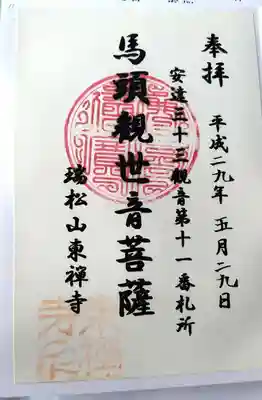 奉拝
平成二九年 五月二九日
安達三十三観音第十一番札所
馬頭観世音菩薩
瑞松山東禅寺